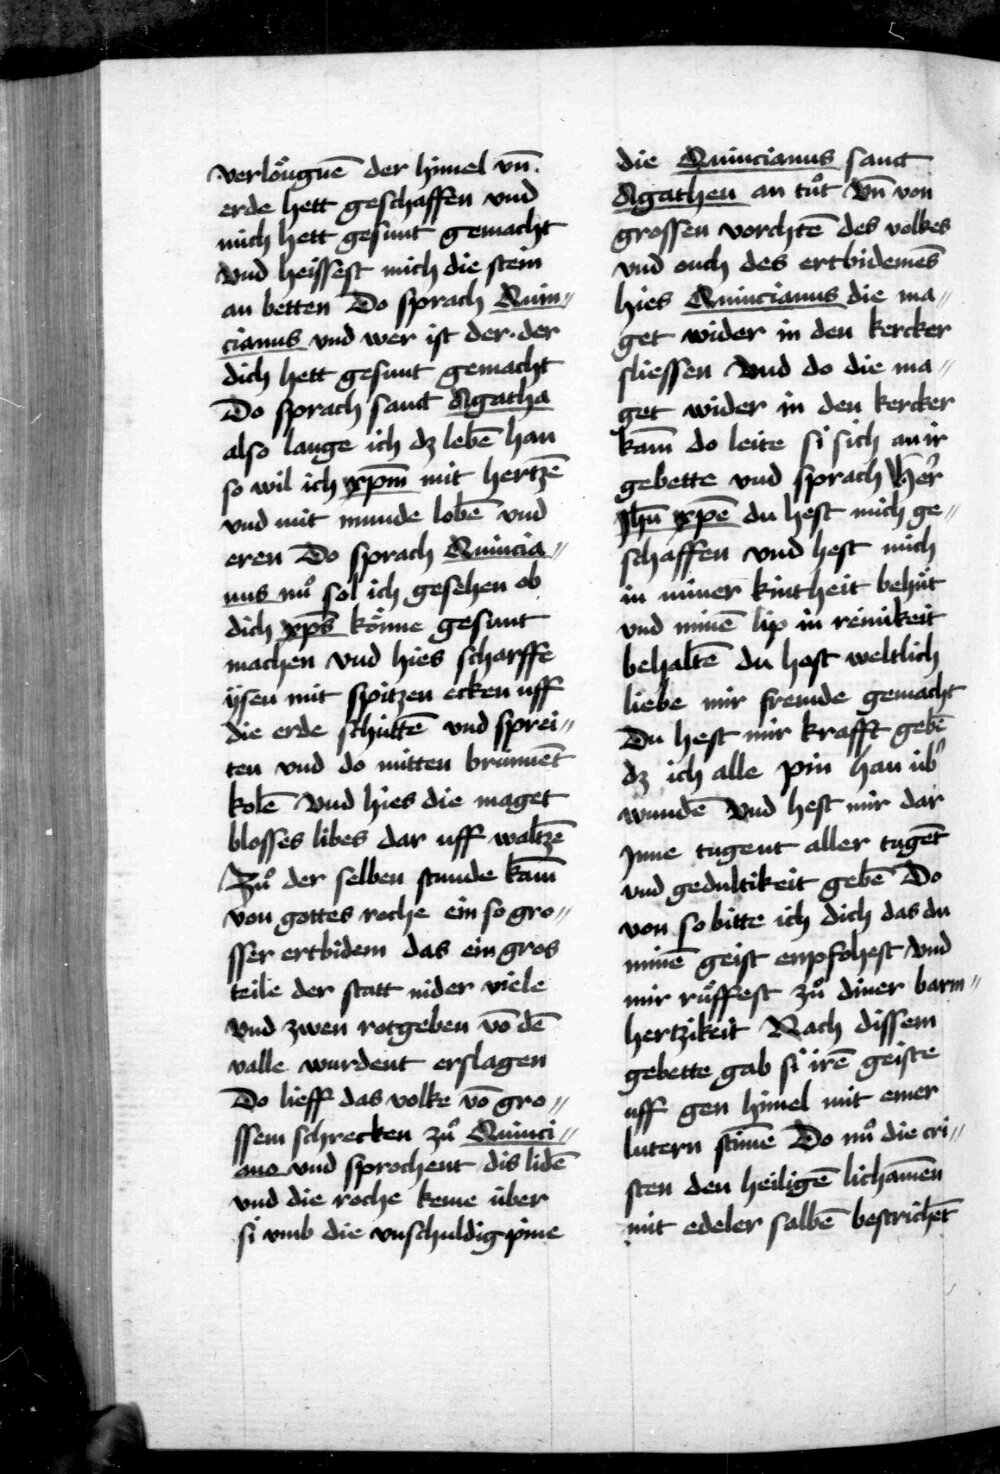 verlöuguē der himel vn̄
erde hett geschaffen vnd
mich hett gesunt gemacht
vnd heissest mich die stein
an betten Do sprach Quin〃
cianus vnd wer ist der · der
dich hett gesunt gemacht
Do sprach sanct Agatha
also lange ich dz lebē han
so wil ich xpm̄ mit hertzē
vnd mit munde lobē vnd
eren Do sprach Quincia〃
nus nuͦ sol ich gesehen ob
dich xps̄ könne gesunt
machen vnd hies scharffe
ijsen mit spitzen ecken uff
die erde schüttē vnd sprei〃
ten vnd do mitten brünnēt
kolē vnd hies die maget
blosses libes dar uff waltzē
Zuͦ der selben stunde kam̄
von gottes roche ein so gro〃
sser ertbidem das ein gros
teile der statt nider viele
vnd zwen rotgeben vō dē
valle wurdent erslagen
Do lieff das volke vō gro〃
ssem schrecken zuͦ Quinci〃
ano vnd sprochent dis lidē
vnd die roche keme über
si vmb die vnschuldig pine
die Quincianus sanct
Agathen an tuͦt vn̄ von
grossen vorchtē des volkes
vnd ouch des ertbidemēs
hies Quincianus die ma〃
get wider in den kercker
sliessen vnd do die ma〃
get wider in den kercker
kam̄ do leite si sich an ir
gebette vnd sprach her̄
Jhū xpē du hest mich ge〃
schaffen vnd hest mich
in miner kintheit behüt
vnd minē lip in reinikeit
behaltē du hast weltlich
liebe mir fremde gemacht
Du hest mir krafft gebē
dz ich alle pin han üb̄
wundē vnd hest mir dar
Jnne tugent aller tugēt
vnd gedultikeit gebē Do
von so bitte ich dich das du
minē geist enpfohest vnd
mir ruͤffest zuͦ diner barm〃
hertzikeit Nach dissem
gebette gab si irē geiste
uff gen himel mit einer
lutern stim̄e Do nuͦ die cri〃
sten den heiligē lichamēn
mit edeler salbē bestrichēt